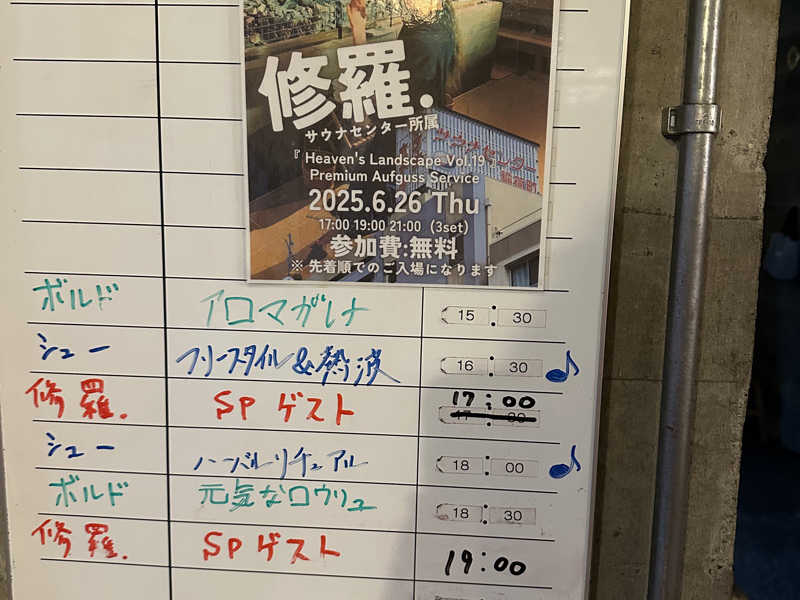 修羅.
サウナセンター所属
『 Heaven's Landscape Vol.19
Premium Aufguss Service
2025.6.26 Thu
17:00 19:00 21:00 (3set)
参加費:無料
※ 先着順でのご入場になります
サウナセンター
ボルド アロマガレナ 15:30
シュー フリースタイル&熱波 16:30 ♪
修羅. SPゲスト 17:00
17:30
シュー ハーバルリチュアル 18:00 ♪
ボルド 元気なロウリュ 18:30
修羅. SPゲスト 19:00